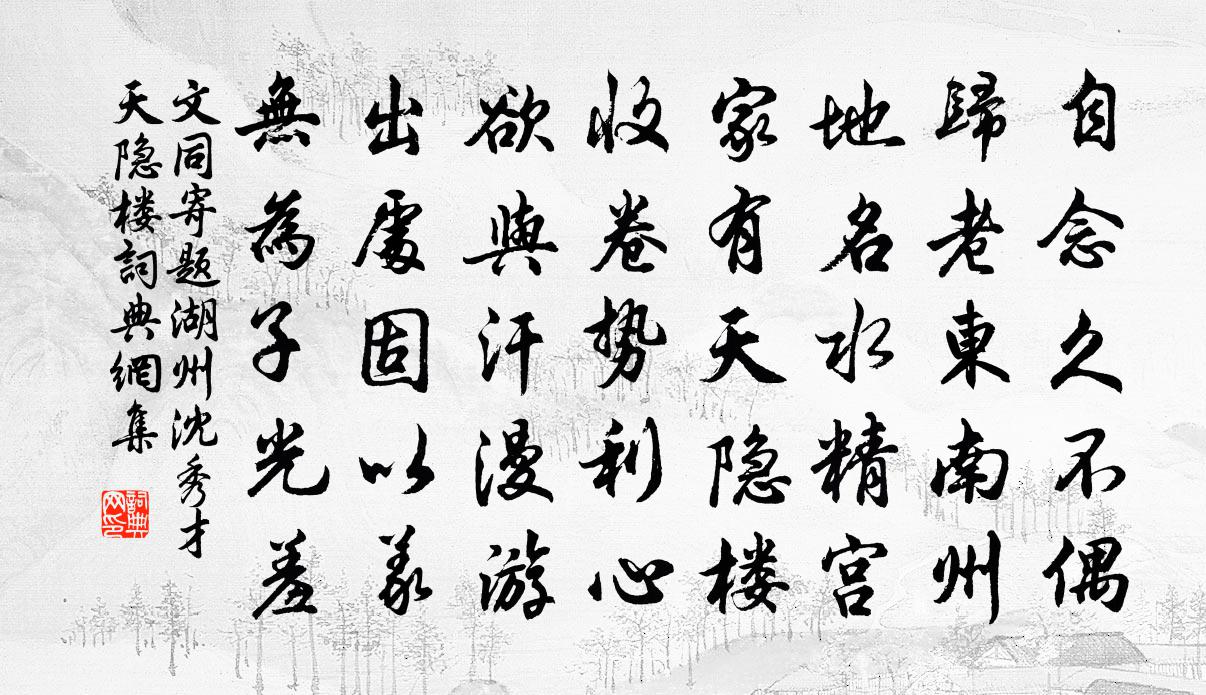 自念久不偶
歸老東南州
地名水精宫
家有天隐楼
收卷势利心
欲與汗漫游
出處固以義
無為子光羞
文同寄题湖州沈秀才
天隐楼詞典網集
詞典网印